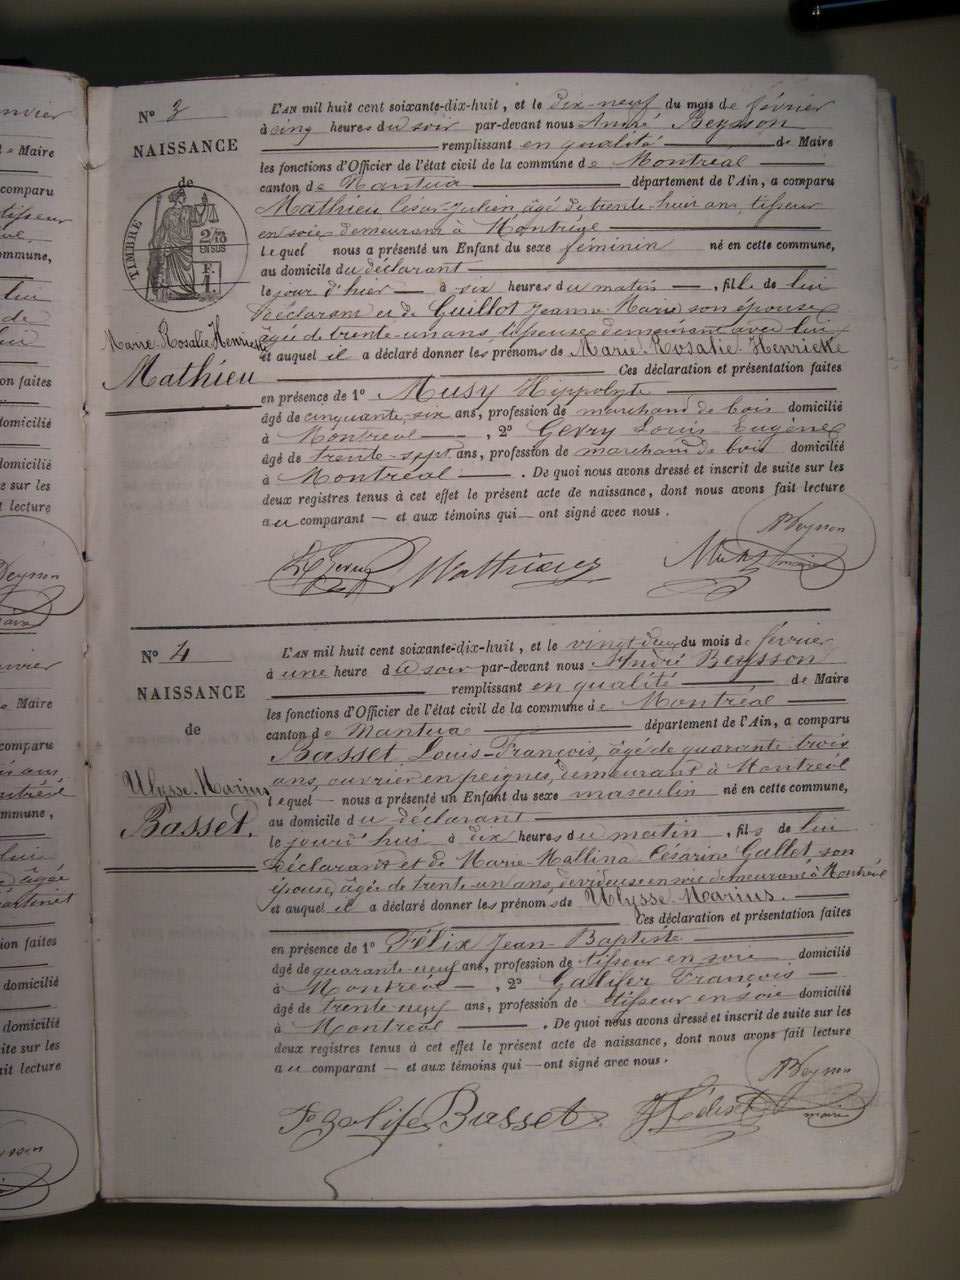 Nº 3
NAISSANCE
de
TIMBRE
2/10
EN SUS
F.
1.
Marie-Rosalie-Henriette
Mathieu
L'AN mil huit cent soixante-dix-huit, et le dix-neuf du mois de février
à cinq heures du soir par-devant nous André Beysson
remplissant en qualité de Maire
les fonctions d'Officier de l'état civil de la commune de Montréal
canton de Nantua département de l'Ain, a comparu
Mathieu César-Julien âgé de trente-huit ans, tisseur
en soie demeurant à Montréal
lequel nous a présenté un Enfant du sexe féminin né en cette commune,
au domicile du déclarant
le jour d'hier à six heures du matin, fille de lui
déclarant et de Guillot Jeanne-Marie son épouse
âgée de trente-un ans, demeurant avec lui
et auquel il a déclaré donner les prénoms de Marie-Rosalie-Henriette
Ces déclaration et présentation faites
en présence de 1º Musy Hippolyte
âgé de cinquante-six ans, profession de marchand de bois domicilié
à Montréal, 2º Gevry Louis Eugène
âgé de trente-sept ans, profession de marchand de bois domicilié
à Montréal. De quoi nous avons dressé et inscrit de suite sur les
deux registres tenus à cet effet le présent acte de naissance, dont nous avons fait lecture
au comparant et aux témoins qui ont signé avec nous.
Mathieu
Beysson
maire
Nº 4
NAISSANCE
de
Ulysse-Marius
Basset.
L'AN mil huit cent soixante-dix-huit, et le vingt deux du mois de février
à une heure du soir par-devant nous André Beysson
remplissant en qualité de Maire
les fonctions d'Officier de l'état civil de la commune de Montréal
canton de Nantua département de l'Ain, a comparu
Basset, Louis-François, âgé de quarante trois
ans, ouvrier en peignes, demeurant à Montréal
lequel nous a présenté un Enfant du sexe masculin né en cette commune,
au domicile du déclarant
le jourd'hui à dix heures du matin, fils de lui
déclarant et de Marie-Mallina-Césarine Gallet, son
épouse, âgée de trente-un ans, dévideuse en soie demeurant à Montréal
et auquel il a déclaré donner les prénoms de Ulysse-Marius.
Ces déclaration et présentation faites
en présence de 1º Félix Jean-Baptiste
âgé de quarante-neuf ans, profession de tisseur en soie domicilié
à Montréal, 2º Galifer François
âgé de trente-neuf ans, profession de tisseur en soie domicilié
à Montréal. De quoi nous avons dressé et inscrit de suite sur les
deux registres tenus à cet effet le présent acte de naissance, dont nous avons fait lecture
au comparant et aux témoins qui ont signé avec nous.
Basset
Beysson
maire